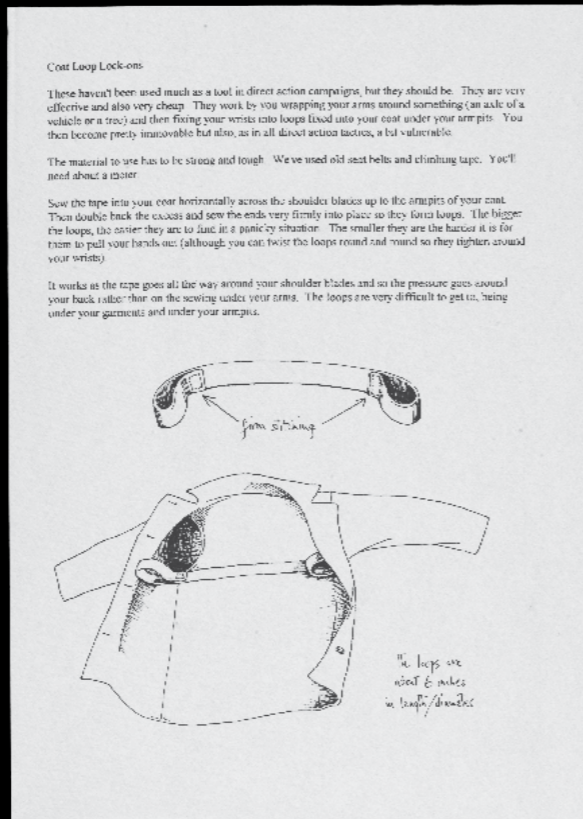 Coat Loop Lock-ons
These haven't been used much as a tool in direct action campaigns, but they should be. They are very
effective and also very cheap. They work by you wrapping your arms around something (an axle of a
vehicle or a tree) and then fixing your wrists into loops fixed into your coat under your armpits. You
then become pretty immovable but also, as in all direct action tactics, a bit vulnerable.
The material to use has to be strong and tough. We've used old seat belts and climbing tape. You'll
need about a meter.
Sew the tape into your coat horizontally across the shoulder blades up to the armpits of your coat.
Then double back the excess and sew the ends very firmly into place so they form loops. The bigger
the loops, the easier they are to find in a panicky situation. The smaller they are the harder it is for
them to pull your hands out (although you can twist the loops round and round so they tighten around
your wrists).
It works as the tape goes all the way around your shoulder blades and so the pressure goes around
your back rather than on the sewing under your arms. The loops are very difficult to get to, being
under your garments and under your armpits.
firm stitching
loops are
about 6 inches
in length/diameter